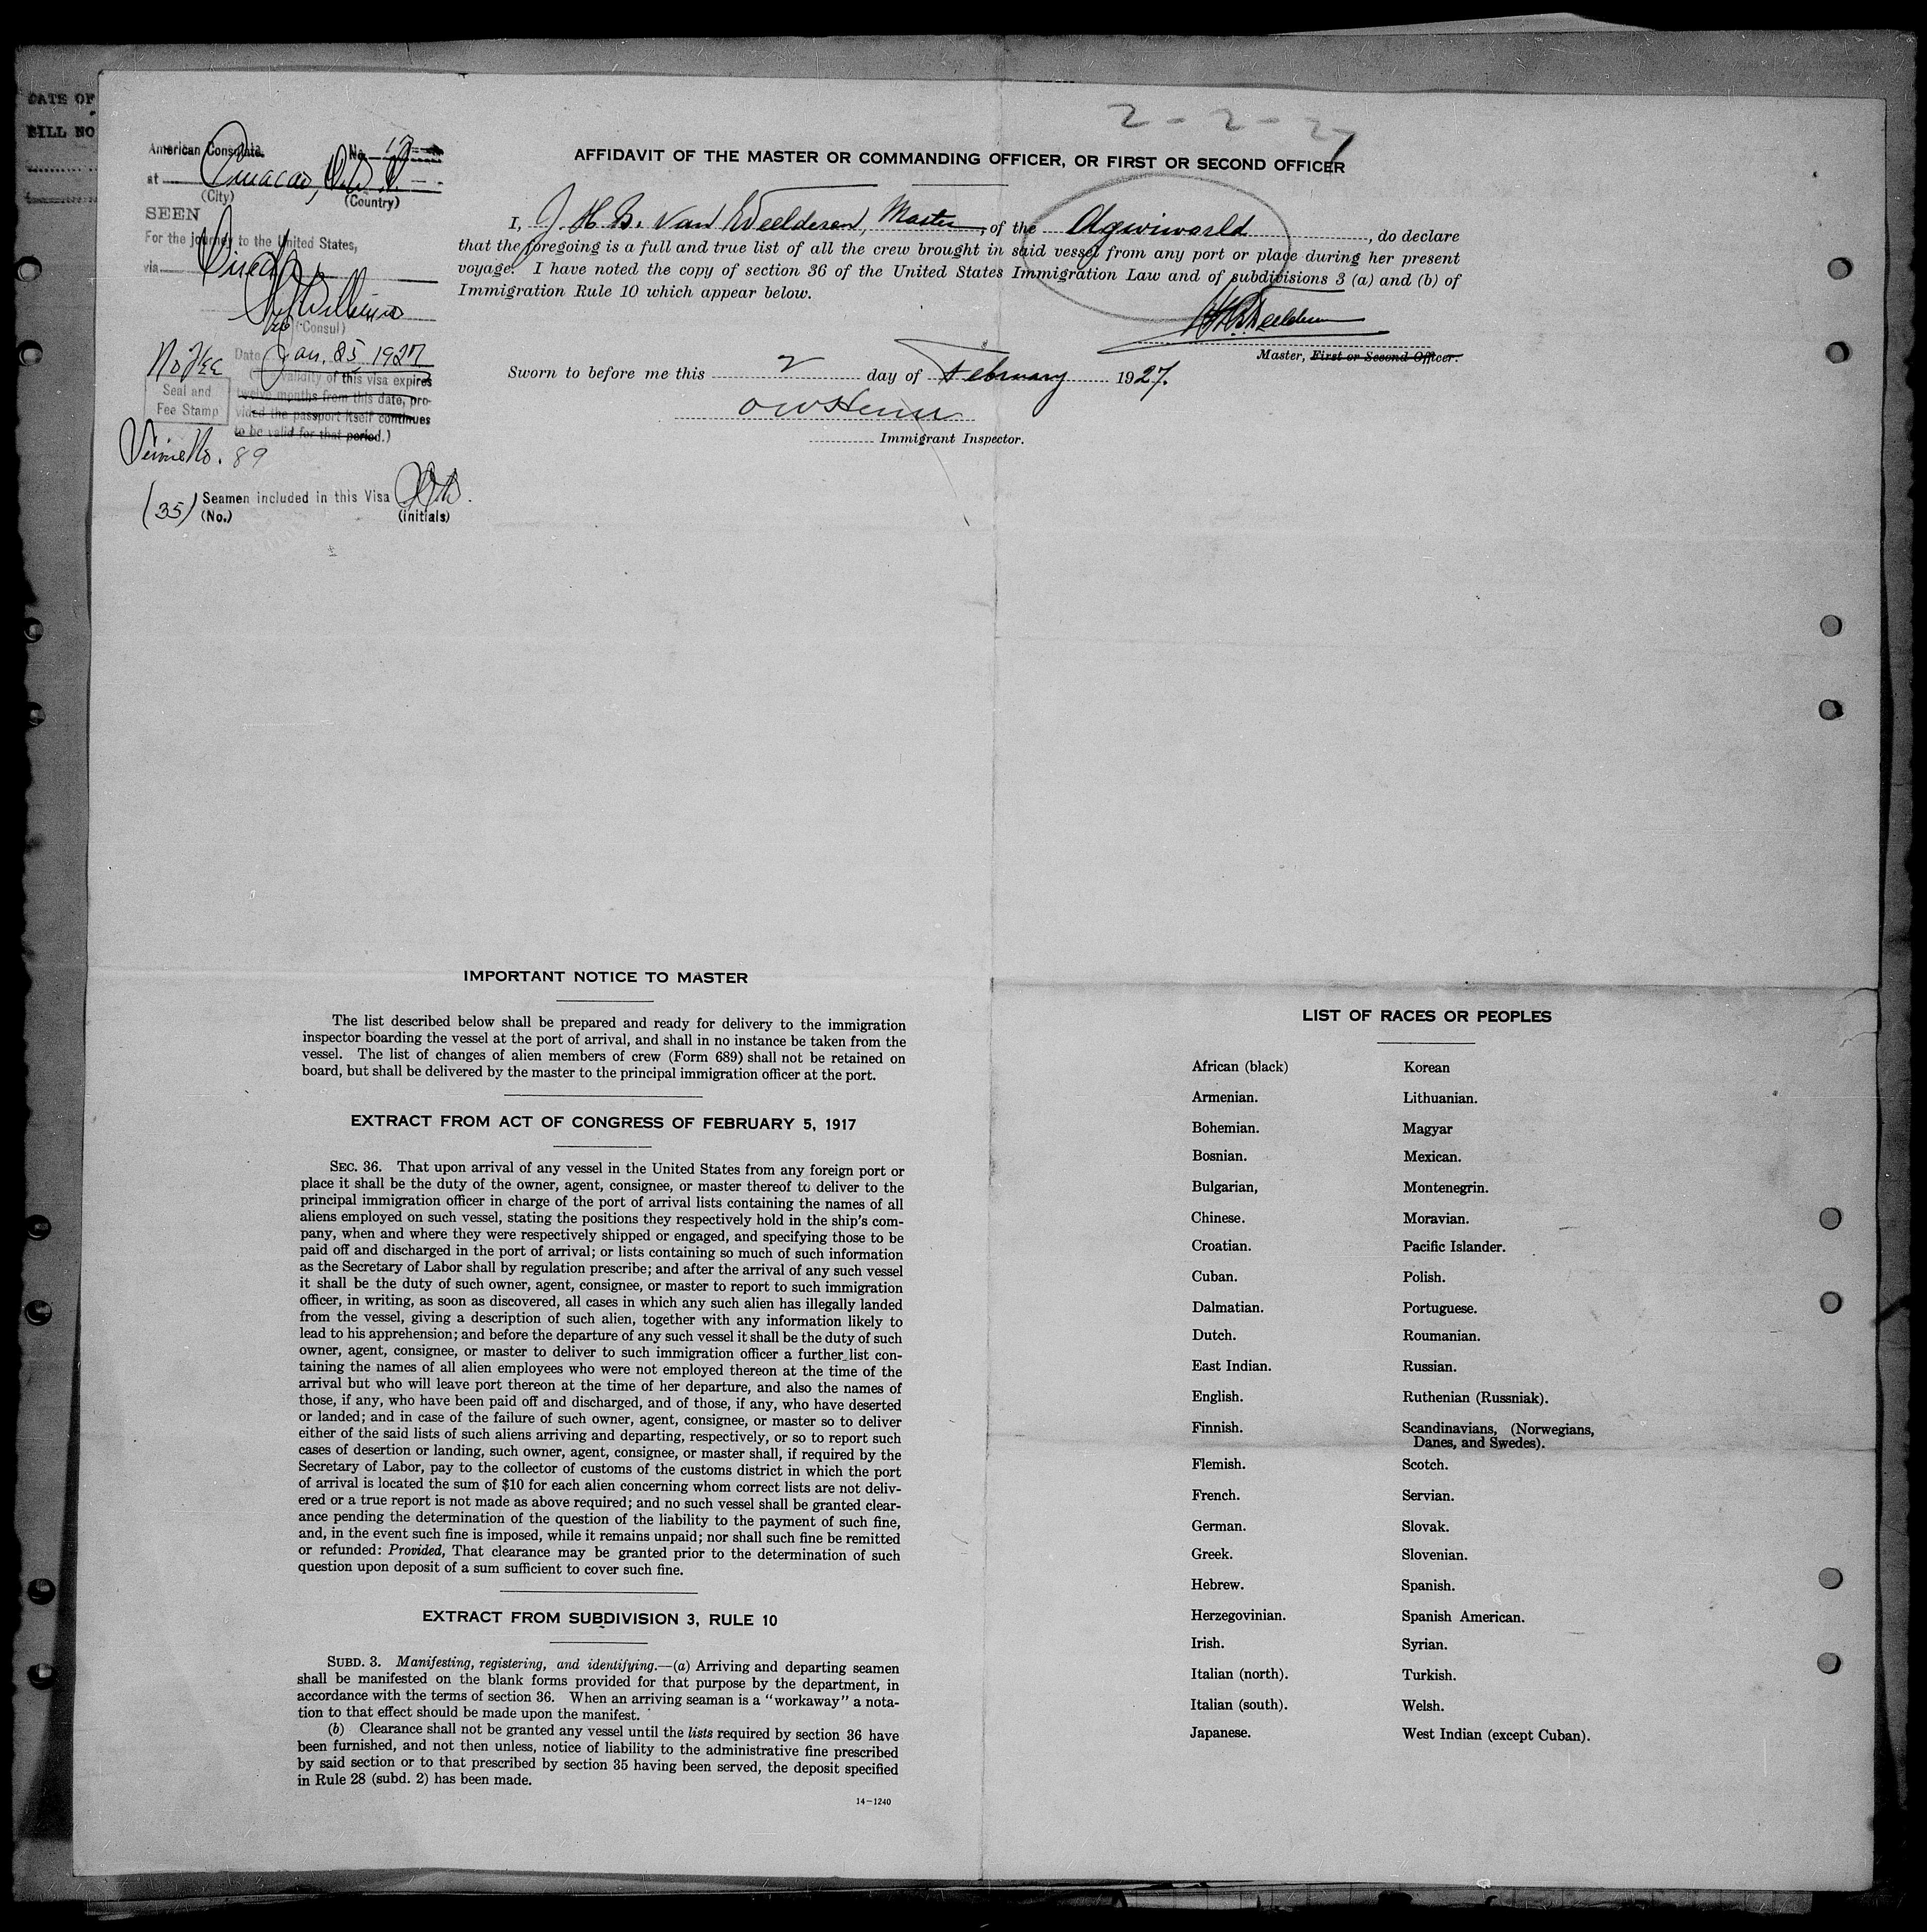 DATE OF
BILL NO
2 - 2 - 27
American Consulate No. 17
at Curacao, D.W.I.
(City) (Country)
SEEN
For the journey to the United States,
via Direct
(Consul)
No Fee
Date Jan. 25, 1927
(Validity of this visa expires
twelve months from this date, pro-
vided the passport itself continues
to be valid for that period.)
Seal and
Fee Stamp
Service No. 89
(35) Seamen included in this Visa
(No.) (initials)
AFFIDAVIT OF THE MASTER OR COMMANDING OFFICER, OR FIRST OR SECOND OFFICER
I, J. H. B. Van Weelderen, Master, of the Agwiworld, do declare
that the foregoing is a full and true list of all the crew brought in said vessel from any port or place during her present
voyage. I have noted the copy of section 36 of the United States Immigration Law and of subdivisions 3 (a) and (b) of
Immigration Rule 10 which appear below.
Master, First or Second Officer.
Sworn to before me this 2 day of February 1927.
Immigrant Inspector.
IMPORTANT NOTICE TO MASTER
The list described below shall be prepared and ready for delivery to the immigration
inspector boarding the vessel at the port of arrival, and shall in no instance be taken from the
vessel. The list of changes of alien members of crew (Form 689) shall not be retained on
board, but shall be delivered by the master to the principal immigration officer at the port.
EXTRACT FROM ACT OF CONGRESS OF FEBRUARY 5, 1917
SEC. 36. That upon arrival of any vessel in the United States from any foreign port or
place it shall be the duty of the owner, agent, consignee, or master thereof to deliver to the
principal immigration officer in charge of the port of arrival lists containing the names of all
aliens employed on such vessel, stating the positions they respectively hold in the ship's com-
pany, when and where they were respectively shipped or engaged, and specifying those to be
paid off and discharged in the port of arrival; or lists containing so much of such information
as the Secretary of Labor shall by regulation prescribe; and after the arrival of any such vessel
it shall be the duty of such owner, agent, consignee, or master to report to such immigration
officer, in writing, as soon as discovered, all cases in which any such alien has illegally landed
from the vessel, giving a description of such alien, together with any information likely to
lead to his apprehension; and before the departure of any such vessel it shall be the duty of such
owner, agent, consignee, or master to deliver to such immigration officer a further list con-
taining the names of all alien employees who were not employed thereon at the time of the
arrival but who will leave port thereon at the time of her departure, and also the names of
those, if any, who have been paid off and discharged, and of those, if any, who have deserted
or landed; and in case of the failure of such owner, agent, consignee, or master so to deliver
either of the said lists of such aliens arriving and departing, respectively, or so to report such
cases of desertion or landing, such owner, agent, consignee, or master shall, if required by the
Secretary of Labor, pay to the collector of customs of the customs district in which the port
of arrival is located the sum of $10 for each alien concerning whom correct lists are not deliv-
ered or a true report is not made as above required; and no such vessel shall be granted clear-
ance pending the determination of the question of the liability to the payment of such fine,
and, in the event such fine is imposed, while it remains unpaid; nor shall such fine be remitted
or refunded: Provided, That clearance may be granted prior to the determination of such
question upon deposit of a sum sufficient to cover such fine.
EXTRACT FROM SUBDIVISION 3, RULE 10
SUBD. 3. Manifesting, registering, and identifying.—(a) Arriving and departing seamen
shall be manifested on the blank forms provided for that purpose by the department, in
accordance with the terms of section 36. When an arriving seaman is a "workaway" a nota-
tion to that effect should be made upon the manifest.
(b) Clearance shall not be granted any vessel until the lists required by section 36 have
been furnished, and not then unless, notice of liability to the administrative fine prescribed
by said section or to that prescribed by section 35 having been served, the deposit specified
in Rule 28 (subd. 2) has been made.
14—1240
LIST OF RACES OR PEOPLES
African (black)
Armenian.
Bohemian.
Bosnian.
Bulgarian,
Chinese.
Croatian.
Cuban.
Dalmatian.
Dutch.
East Indian.
English.
Finnish.
Flemish.
French.
German.
Greek.
Hebrew.
Herzegovinian.
Irish.
Italian (north).
Italian (south).
Japanese.
Korean
Lithuanian.
Magyar
Mexican.
Montenegrin.
Moravian.
Pacific Islander.
Polish.
Portuguese.
Roumanian.
Russian.
Ruthenian (Russniak).
Scandinavians, (Norwegians,
Danes, and Swedes).
Scotch.
Servian.
Slovak.
Slovenian.
Spanish.
Spanish American.
Syrian.
Turkish.
Welsh.
West Indian (except Cuban).